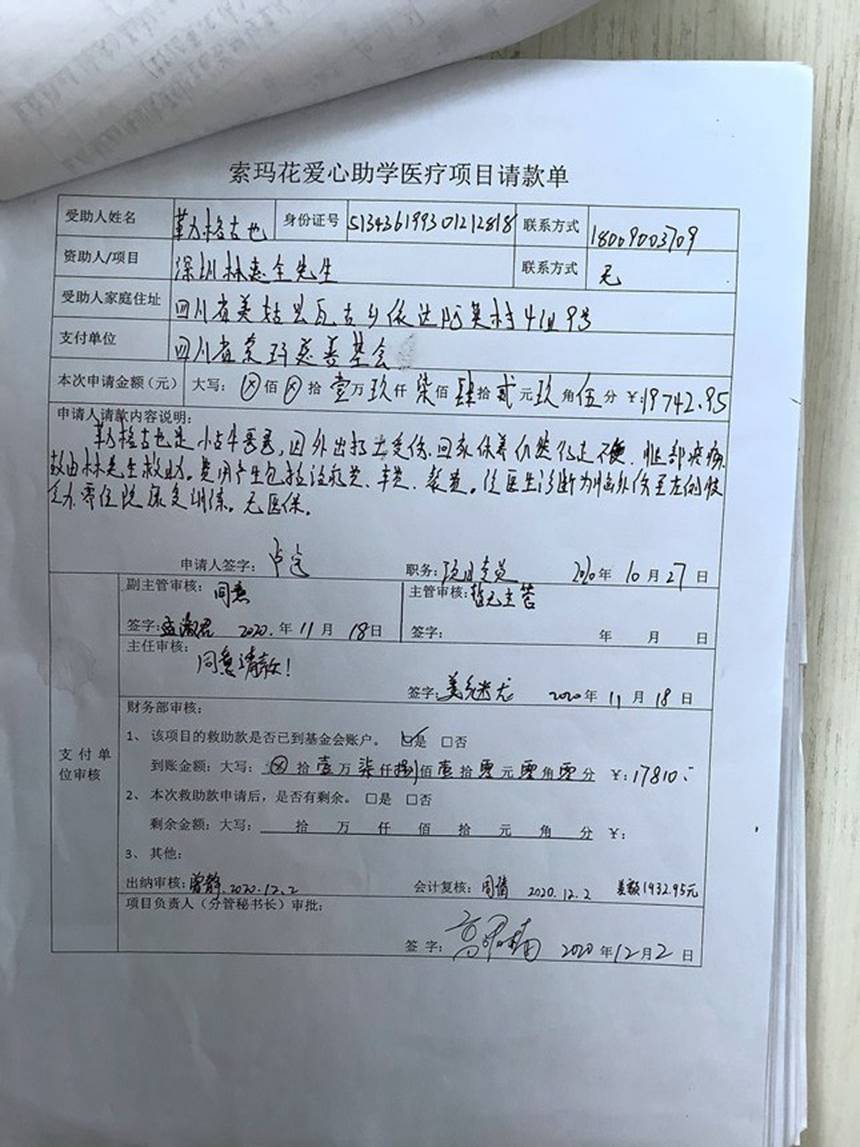 索玛花爱心助学医疗项目请款单
受助人姓名 勒格古也 身份证号 513436199301212818 联系方式 18009003709
资助人/项目 深圳林惠全先生 联系方式 无
受助人家庭住址 四川省美姑县瓦古乡依达阿莫村4组9号
支付单位 四川省索玛慈善基金会
本次申请金额（元） 大写：ⓧ佰ⓧ拾壹万玖仟柒佰肆拾贰元玖角伍分 ￥:19742.95
申请人请款内容说明：
勒格古也是小古牛爸爸，因外出打工受伤，回家保养仍然行走不便，
故由林先生救助。费用产生包括治疗费、车费、餐费。经医生诊断为
需住院康复训练。无医保。
申请人签字： 职务：项目专员 2020年10月27日
副主管审核：同意 主管审核：暂无主管
签字：孟淑君 2020.年11月18日 签字： 年 月 日
主任审核：
同意请款！
签字： 2020年11月18日
财务部审核：
1、该项目的救助款是否已到基金会账户。☑是 □否
到账金额：大写：ⓧ拾壹万柒仟捌佰壹拾零元零角零分 ￥:17810.-
支付单位审核
2、本次救助款申请后，是否有剩余。□是 □否
剩余金额：大写： 拾 万 仟 佰 拾 元 角 分 ￥:
3、其他：
出纳审核：曾静.2020.12.2 会计复核：周倩 2020.12.2 差额1932.95元
项目负责人（分管秘书长）审批：
签字： 2020年12月2日